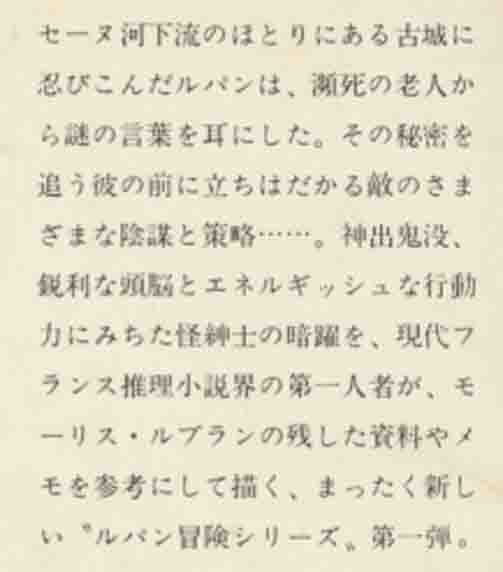 セーヌ河下流のほとりにある古城に
忍びこんだルパンは、瀕死の老人か
ら謎の言葉を耳にした。その秘密を
追う彼の前に立ちはだかる敵のさま
ざまな陰謀と策略……。神出鬼没、
鋭利な頭脳とエネルギッシュな行動
力にみちた怪紳士の暗躍を、現代フ
ランス推理小説界の第一人者が、モ
ーリス・ルブランの残した資料やメ
モを参考にして描く、まったく新し
い〝ルパン冒険シリーズ〟第一弾。